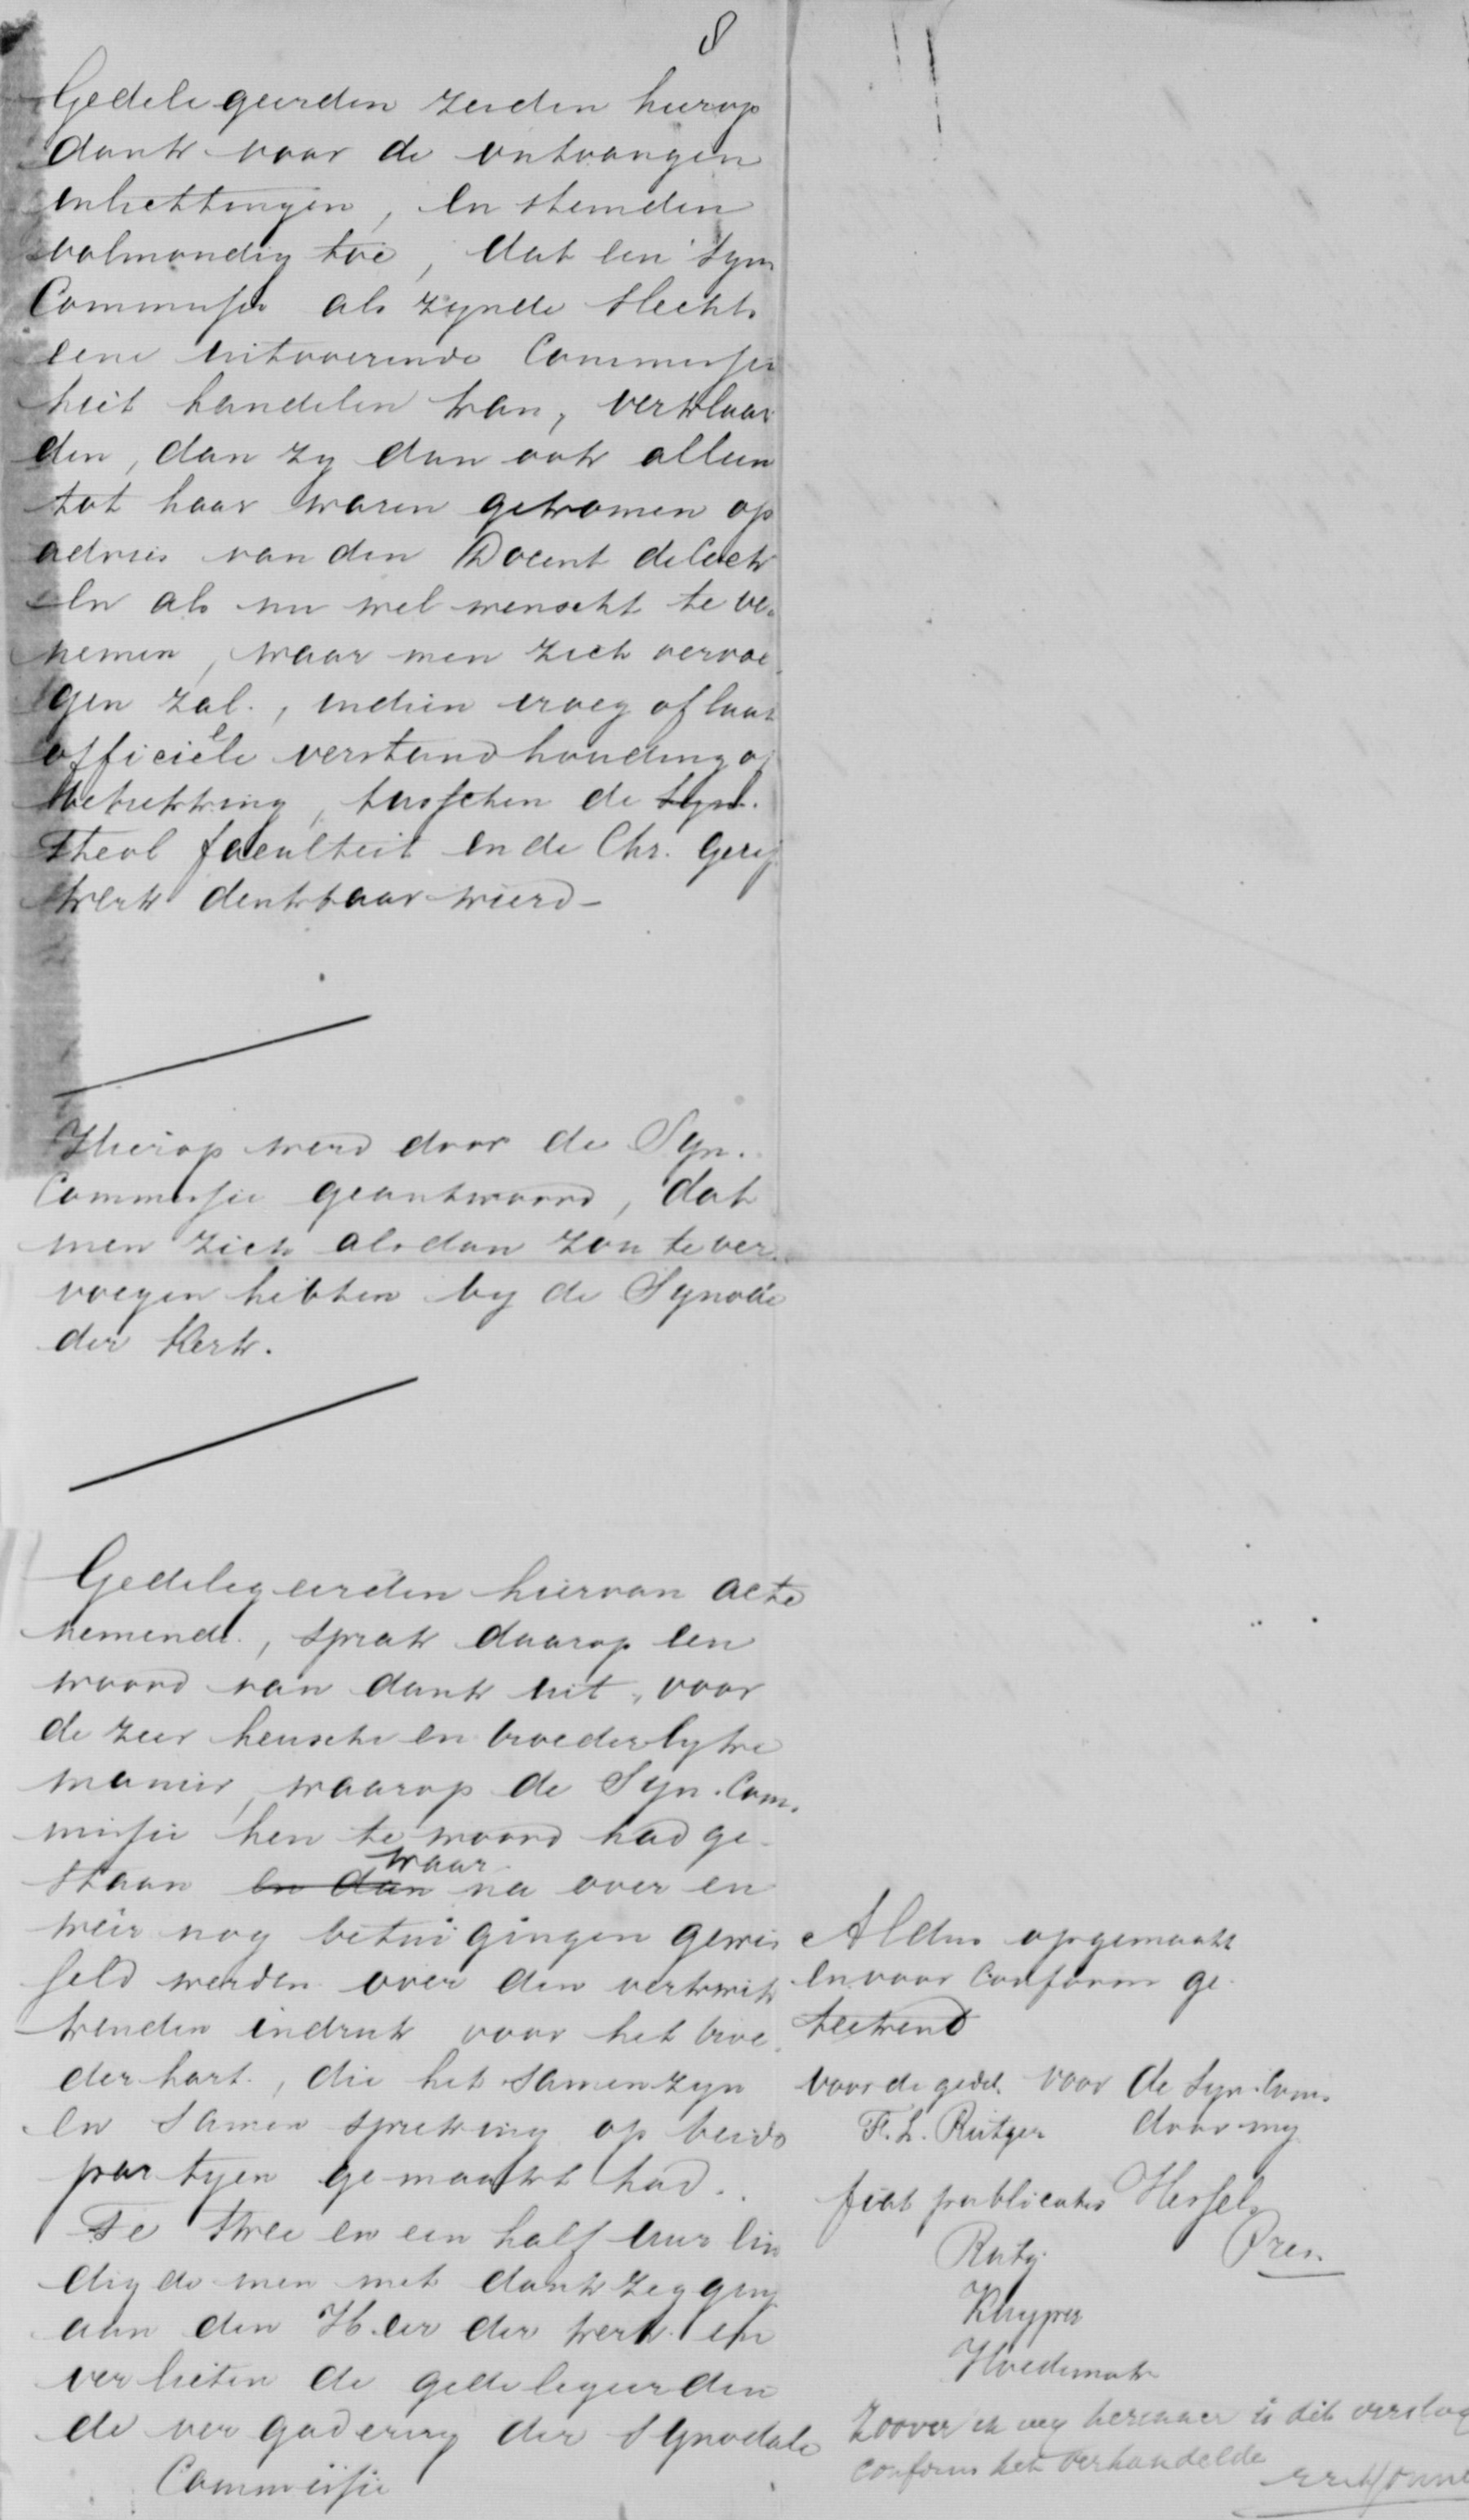 8
Gedelegeerden zeiden hierop
dank voor de ontvangen
inlichtingen, en stemden
volmondig toe, dat een Syn
Commissie als zynde slechts
eene uitvoerende Commissie
niet handelen kan, verklaar
den, dan zy dan ook alleen
tot haar waren gekomen op
advies van den Docent de Cock
En als nu wel wenscht te ver
nemen, waar men zich vervoe
gen zal, indien vroeg of laat
officieële verstandhouding of
betrekking, tusschen de Syn.
Theol faculteit en de Chr. Geref
kerk denkbaar wierd -
Hierop werd door de Syn.
Commissie geantwoord, dat
men zich alsdan zou te ver
voegen hebben by de Synode
der Kerk.
Gedelegeerden hiervan acte
nemende, sprak daarop een
woord van dank uit, voor
de zeer heusche en broederlyke
manier, waarop de Syn. Com.
missie hen te woord had ge-
staan en dan waar na over en
weer nog betuigingen gewis
seld werden over den verkwik
kenden indruk voor het broe
derhart, die het samenzyn
en samenspreking op beide
partyen gemaakt had.
Te twee en een half uur ein
digde men met dankzegging
aan den Heer der kerk en
verlieten de gedelegeerden
de vergadering der Synodale
Commissie
Aldus opgemaakt
en voor Conform ge-
teekend
voor de gedel. voor de Syn. Com.
F. L. Rutgers door my
fiat publicatio Hessels
Rutg. Pres.
Kuyper
Hoedemaker
Zoover ik my herinner is dit verslag
conform het verhandelde